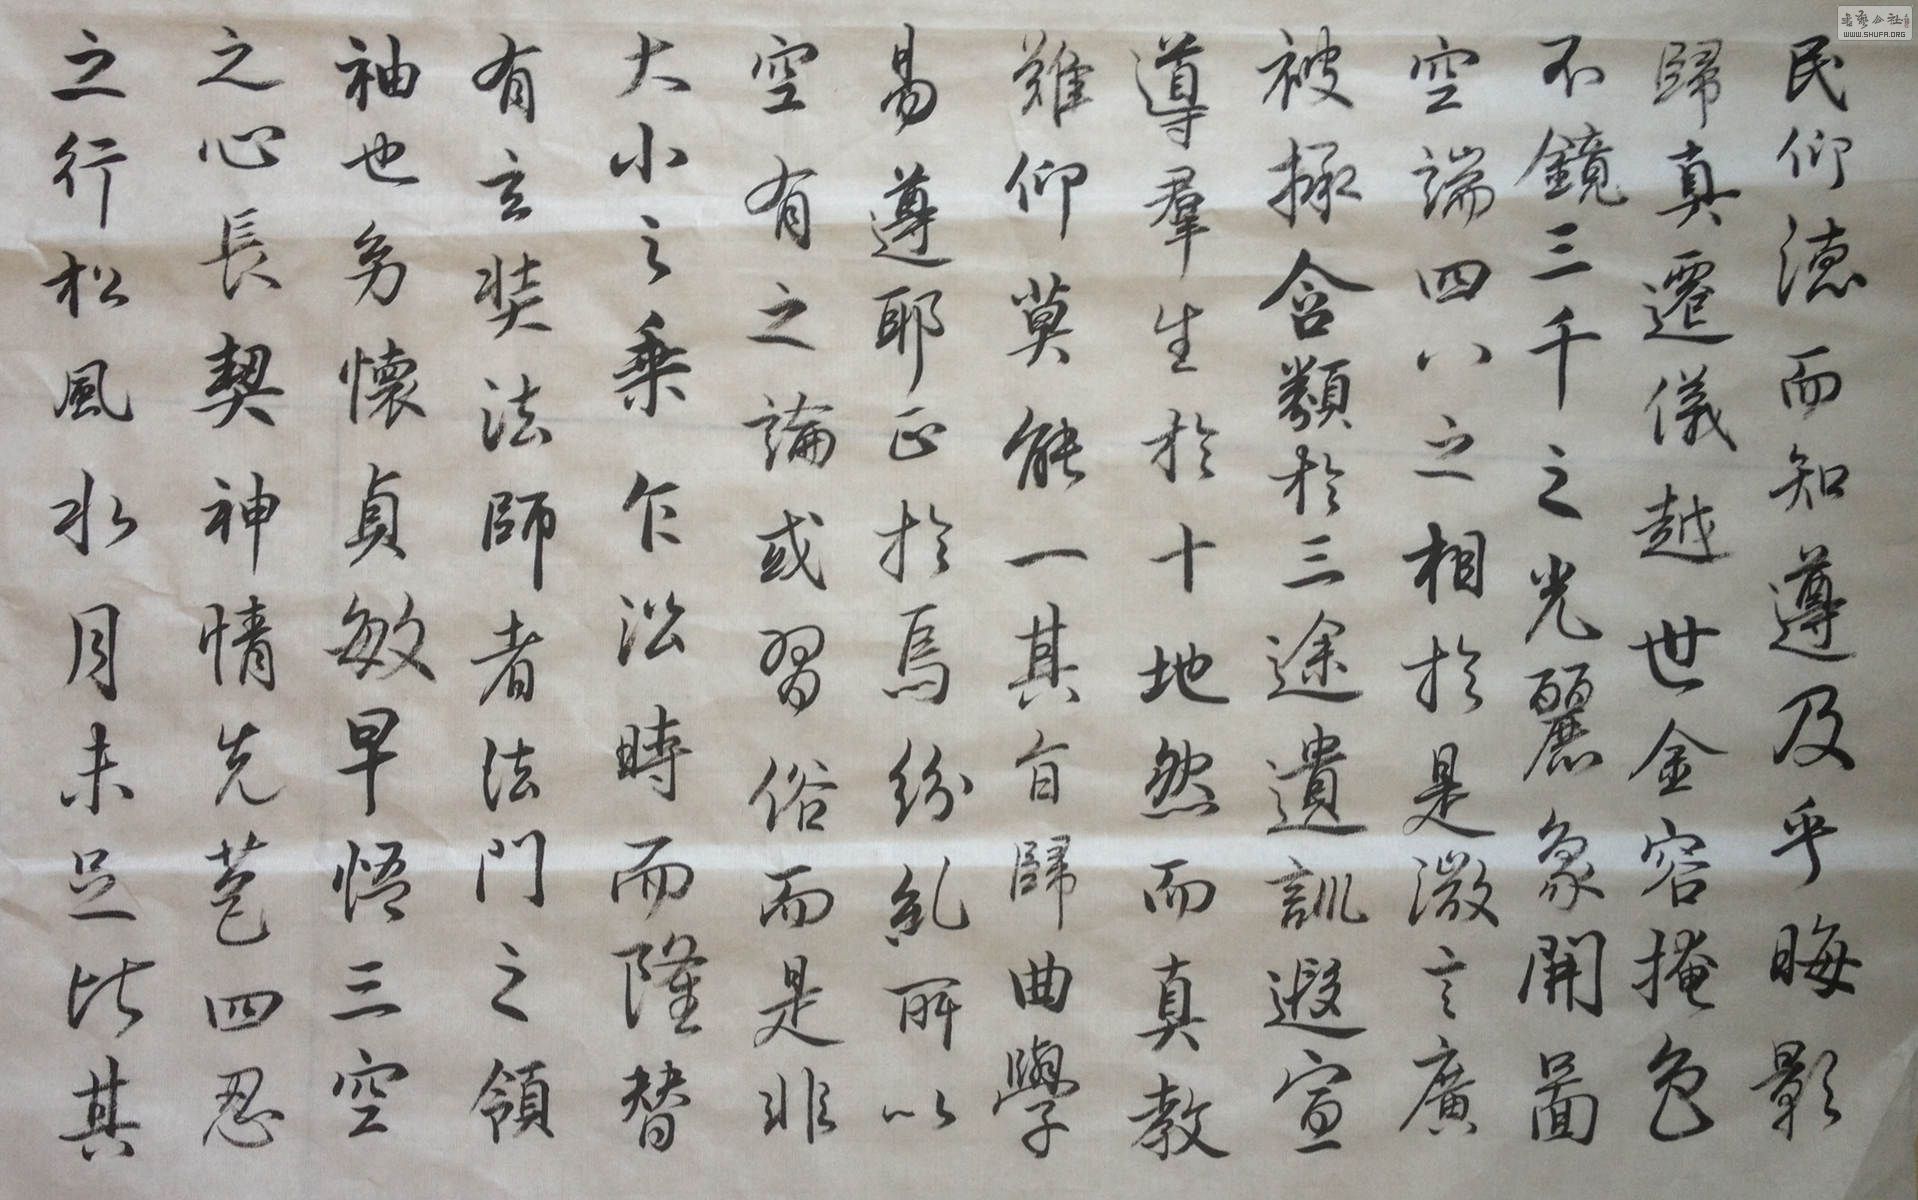 民仰德而知遵及乎晦影
歸真遷儀越世金容掩色
不鏡三千之光麗象開圖
空端四八之相於是微言廣
被拯含類於三途遺訓遐宣
導羣生於十地然而真教
難仰莫能一其旨歸曲學
易遵耶正於焉紛糺所以
空有之論或習俗而是非
大小之乘乍沿時而隆替
有玄奘法師者法門之領
袖也多懷貞敏早悟三空
之心長契神情先苞四忍
之行松風水月未足比其
書藝公社
WWW.SHUFA.ORG